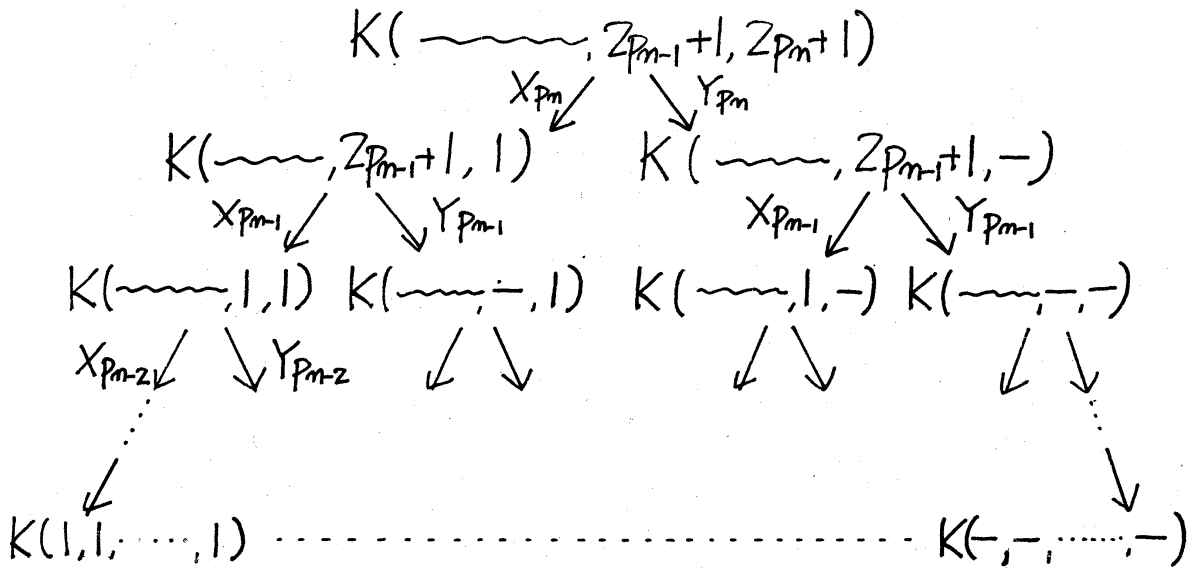 K( ~~~~, 2p_{n-1}+1, 2p_n+1)
X_{p_n} Y_{p_n}
K( ~~~~, 2p_{n-1}+1, 1) K( ~~~~, 2p_{n-1}+1, −)
X_{p_{n-1}} Y_{p_{n-1}} X_{p_{n-1}} Y_{p_{n-1}}
K( ~~~~, 1, 1) K( ~~~~, −, 1) K( ~~~~, 1, −) K( ~~~~, −, −)
X_{p_{n-2}} Y_{p_{n-2}}
K(1, 1, ······, 1) - - - - - - - - - - - - - - - K(−, −, ······, −)